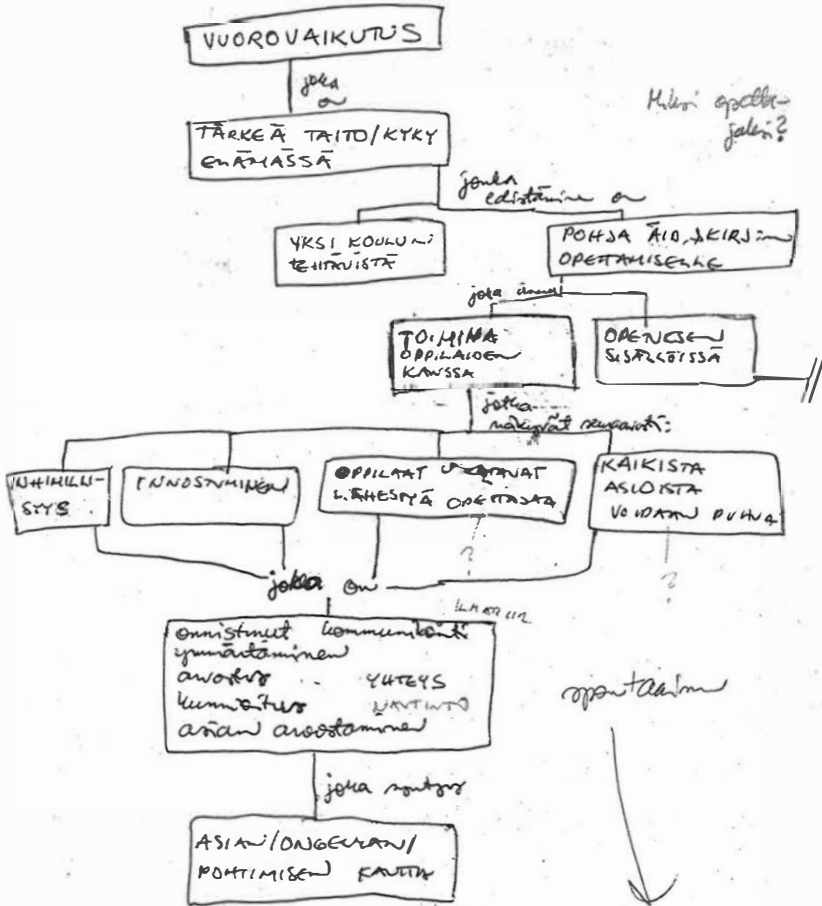 VUOROVAIKUTUS
joka
on
Miksi opetta-
jaksi?
TÄRKEÄ TAITO/KYKY
ELÄMÄSSÄ
jonka
edistäminen on
YKSI KOULUN
TEHTÄVISTÄ
POHJA ÄID. &KIRJ:n
OPETTAMISELLE
joka
TOIMINTA
OPPILAIDEN
KANSSA
OPETUKSEN
SISÄLLÖISSÄ
jotka
näkyvät seuraavasti:
INHIMILLI-
SYYS
INNOSTUMINEN
OPPILAAT USKALTAVAT
LÄHESTYÄ OPETTAJAA
?
KAIKISTA
ASIOISTA
VOIDAAN PUHUA
?
joka on
onnistunut kommunikointi
ymmärtäminen
arvostus YHTEYS
kunnioitus NAUTINTO
asian arvostaminen
spontaanius
joka syntyy
ASIAN/ONGELMAN/
POHTIMISEN KAUTTA